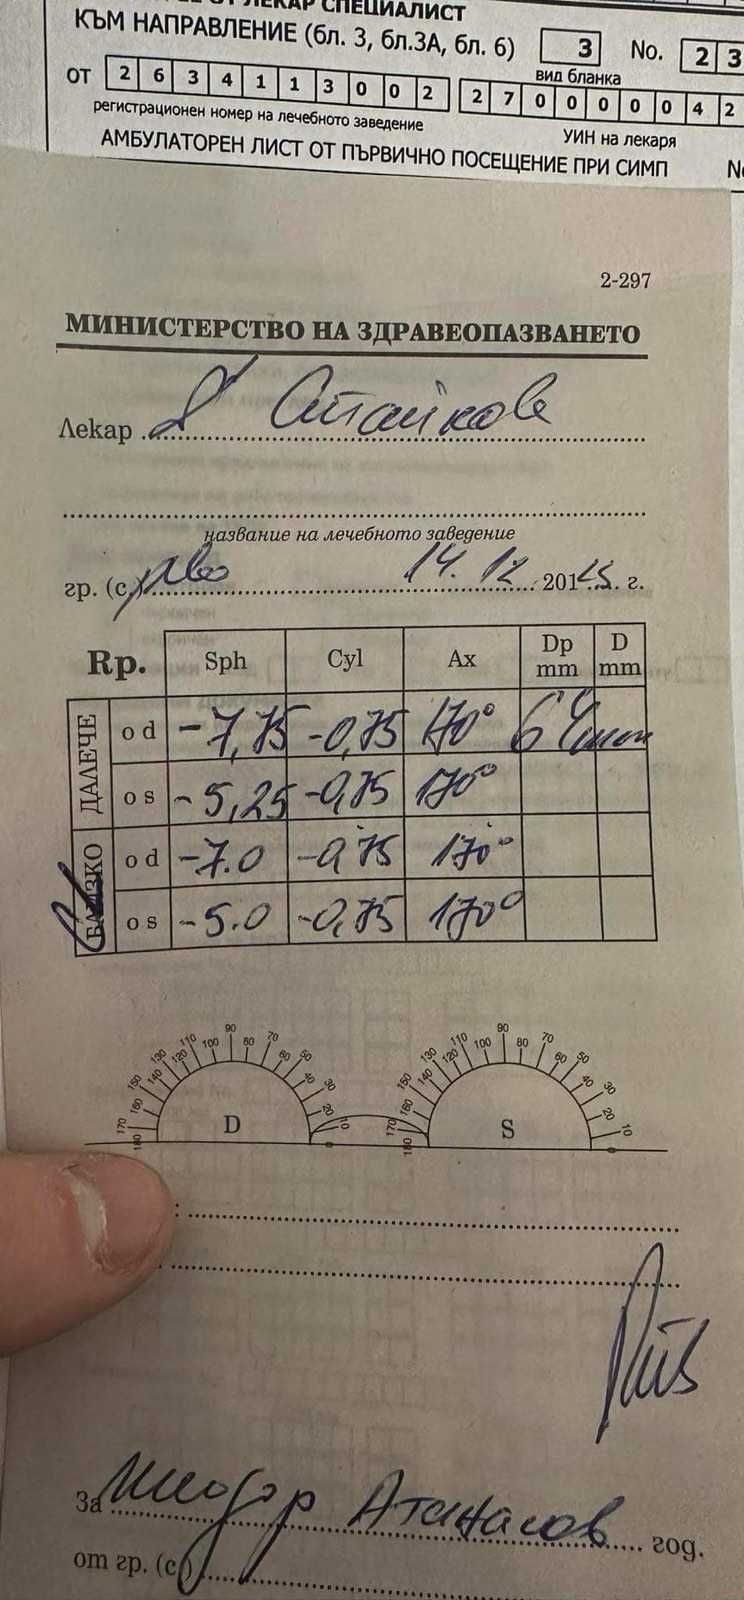 ОТ ЛЕКАР СПЕЦИАЛИСТ
КЪМ НАПРАВЛЕНИЕ (бл. 3, бл.3А, бл. 6) 3 No. 2 3
вид бланка
от 2 6 3 4 1 1 3 0 0 2 2 7 0 0 0 0 0 4 2
регистрационен номер на лечебното заведение УИН на лекаря
АМБУЛАТОРЕН ЛИСТ ОТ ПЪРВИЧНО ПОСЕЩЕНИЕ ПРИ СИМП No
2-297
МИНИСТЕРСТВО НА ЗДРАВЕОПАЗВАНЕТО
Лекар Стайкова
название на лечебното заведение
гр. (с.) 14. 12 . 2015. г.
Rp. Sph Cyl Ax Dp mm D mm
ДАЛЕЧЕ od -7,75 -0,75 170° 64mm
os -5,25 -0,75 170°
БЛИЗКО od -7.0 -0,75 170°
os -5.0 -0,75 170°
180 170 160 150 140 130 120 110 100 90 80 70 60 50 40 30 20 10 0
180 170 160 150 140 130 120 110 100 90 80 70 60 50 40 30 20 10 0
D S
За Теодор Атанасов год.
от гр. (с.)